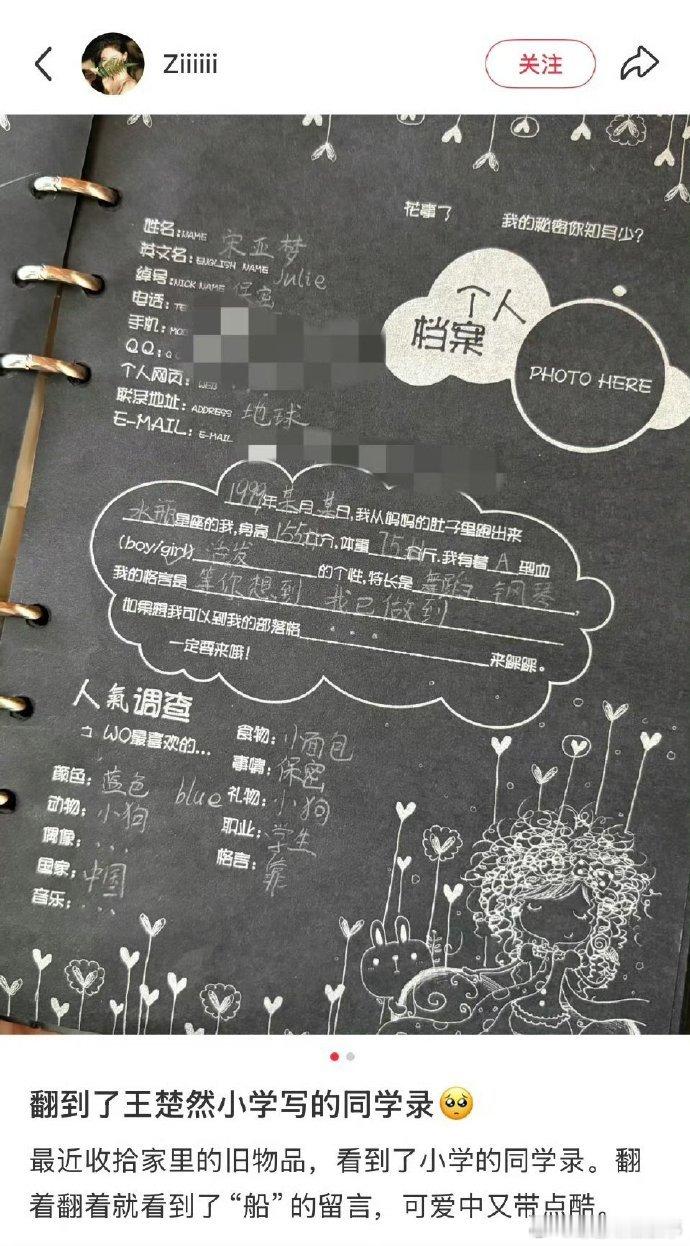 Ziiiiii
关注
花事了
我的秘密你知多少?
姓名:NAME 宋亚梦
英文名:ENGLISH NAME Julie
绰号:NICK NAME 保密
电话:
手机:
QQ:
个人网页:WEB
联系地址:ADDRESS 地球
E-MAIL:E-MAIL
个人
档案
PHOTO HERE
1999年某月某日,我从妈妈的肚子里跑出来
水瓶星座的我,身高155公分,体重75公斤,我有着A型血
(boy/girl) 活发的个性,特长是舞蹈 钢琴,
我的格言是等你想到 我已做到
如果想我可以到我的部落格...
一定要来哦! 来踩踩。
人氣调查
WO最喜欢的...
颜色:蓝色 blue
动物:小狗
偶像:...
国家:中国
音乐:...
食物:小面包
事情:保密
礼物:小狗
职业:学生
格言:
翻到了王楚然小学写的同学录🥺
最近收拾家里的旧物品，看到了小学的同学录。翻
着翻着就看到了“船”的留言，可爱中又带点酷。